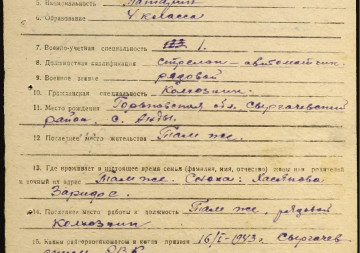 5. Национальность Татарин
6. Образование 4 класса
7. Военно-учетная специальность 1.
8. Должностная квалификация стрелок-автоматчик
9. Военное звание рядовой
10. Гражданская специальность Колхозник
11. Место рождения Горьковская обл. Сыргачевский
район. с. Анды.
12. Последнее место жительства Там же.
13. Где проживает в настоящее время семья (фамилия, имя, отчество) жены или родителей
и точный их адрес Там же. Хасянова
14. Последнее место работы и должность Там же, рядовой
Колхозник
15. Каким райгорвоенкоматом и когда призван 16/I-1943г. Сыргачев
ским РВК